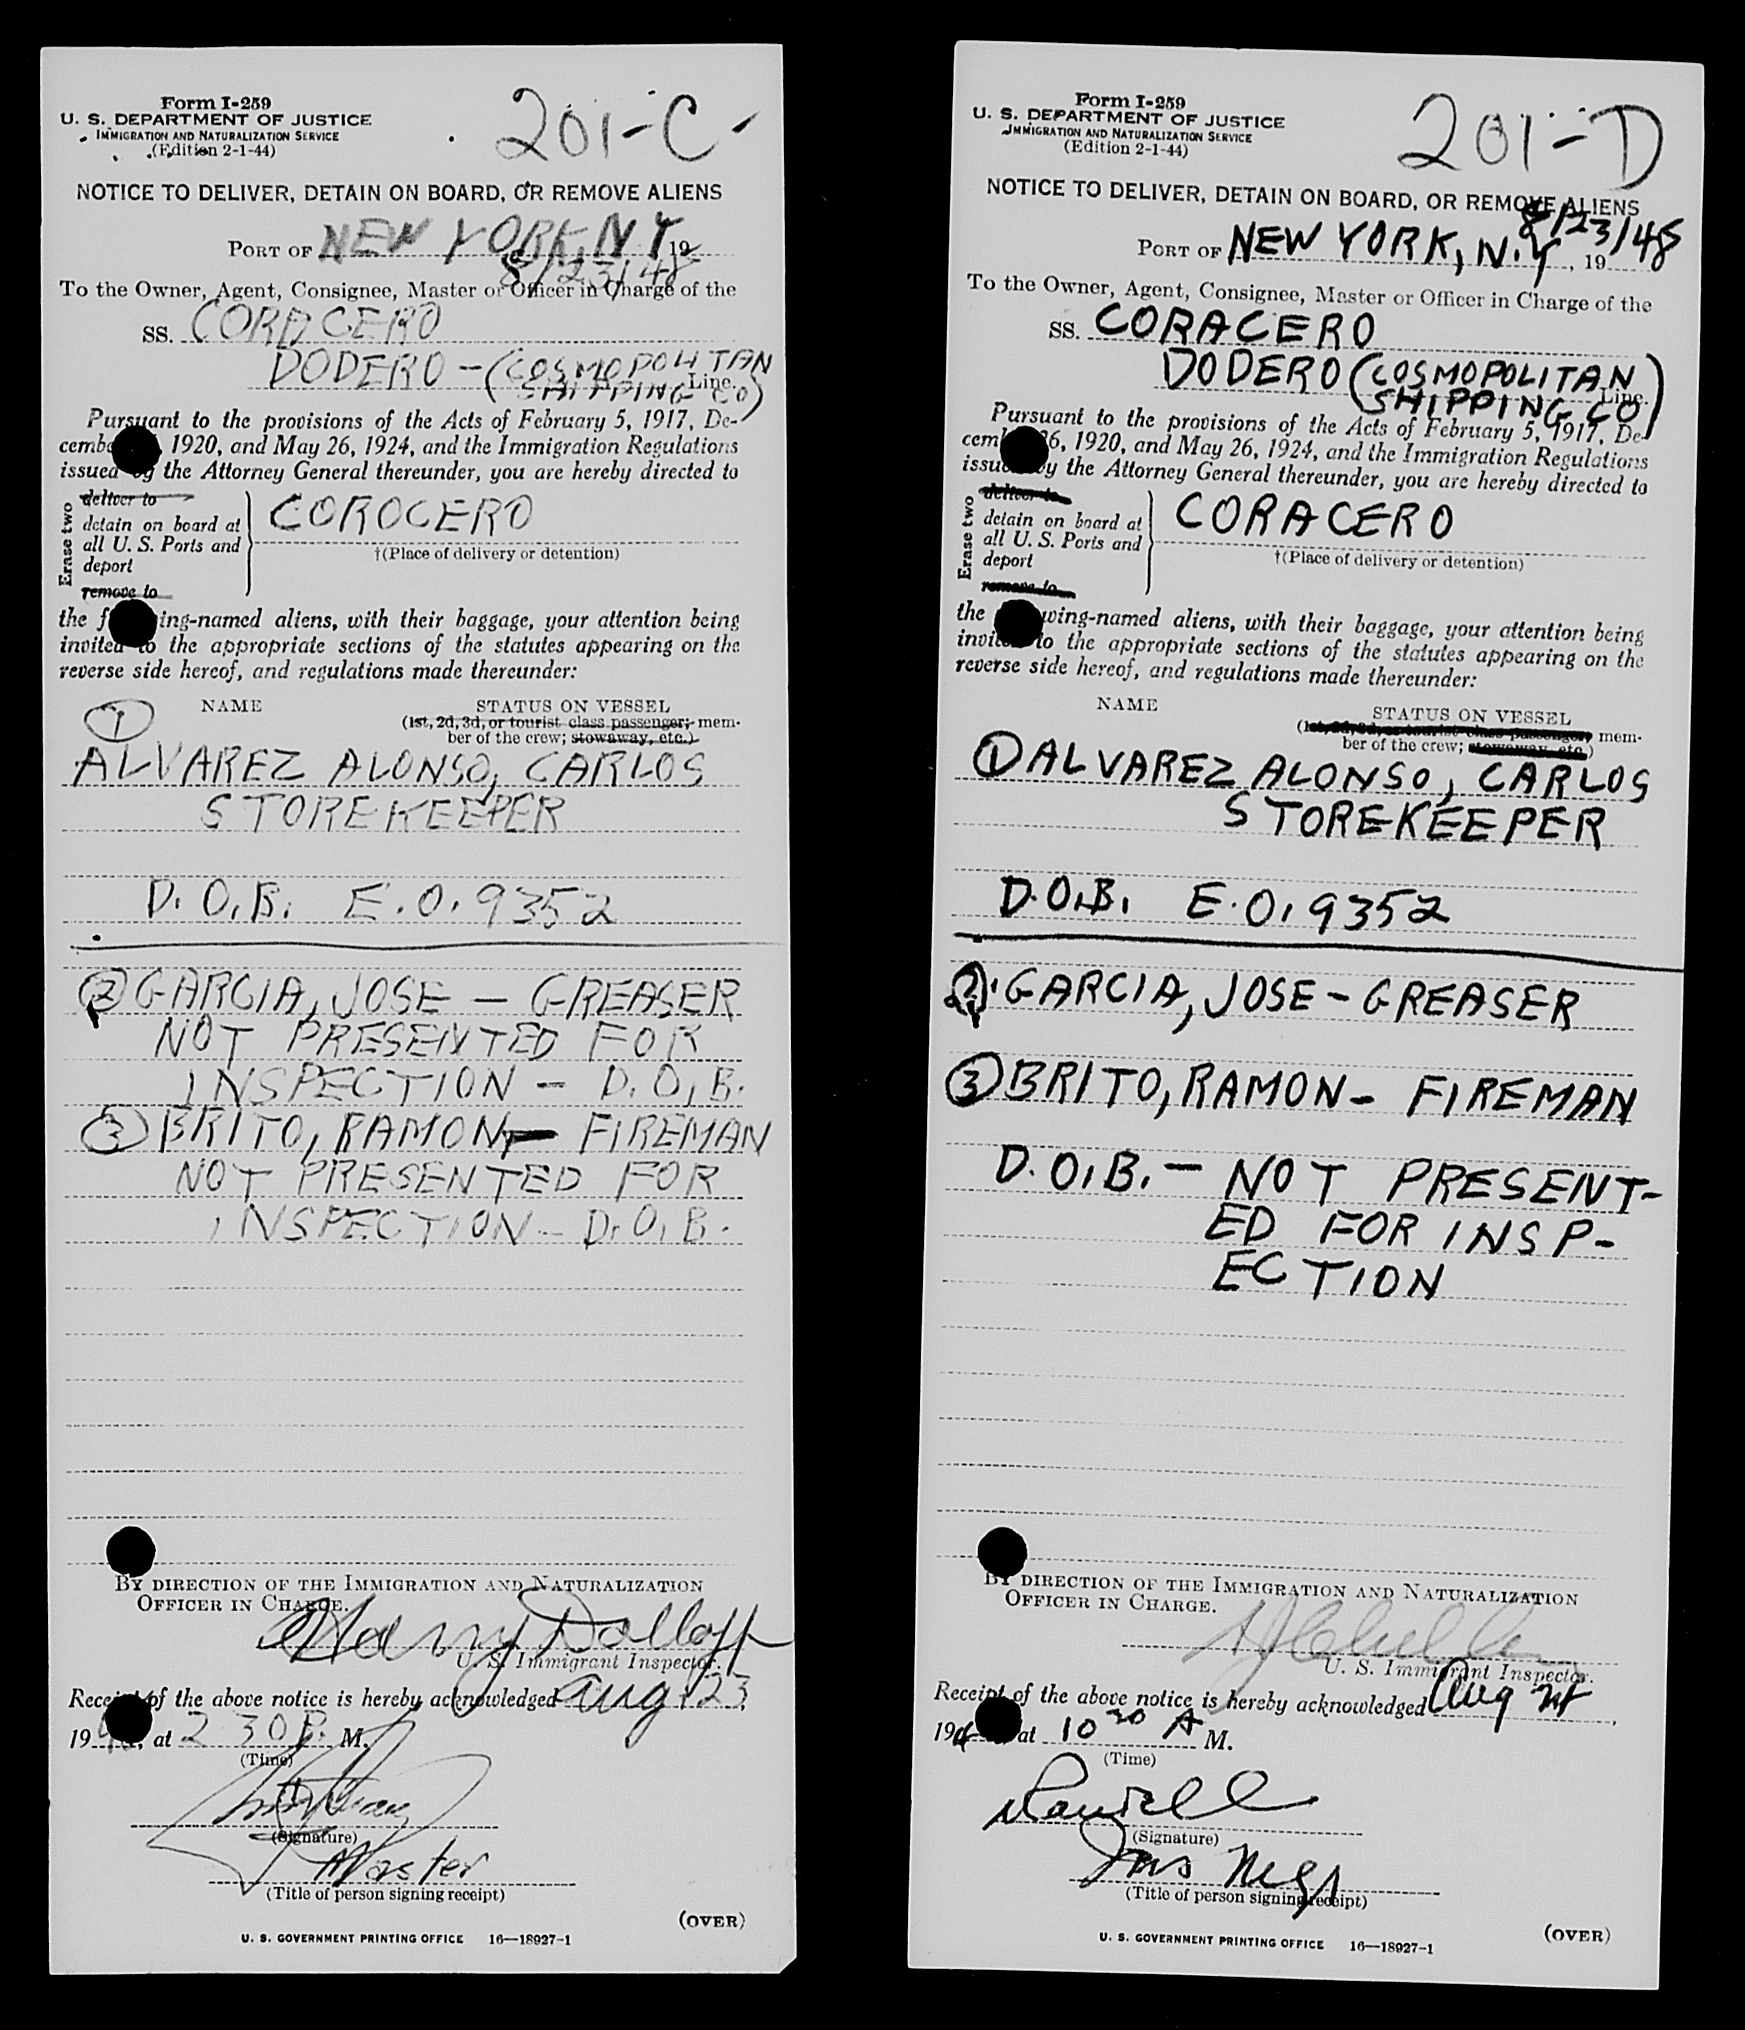 Form I-259
U. S. DEPARTMENT OF JUSTICE
IMMIGRATION AND NATURALIZATION SERVICE
(Edition 2-1-44)
201-C-
NOTICE TO DELIVER, DETAIN ON BOARD, OR REMOVE ALIENS
PORT OF NEW YORK, NY 19
8/23/48
To the Owner, Agent, Consignee, Master or Officer in Charge of the
SS. CORACERO
DODERO - (COSMOPOLITAN
SHIPPING CO) Line.
Pursuant to the provisions of the Acts of February 5, 1917, De-
1920, and May 26, 1924, and the Immigration Regulations
issued by the Attorney General thereunder, you are hereby directed to
Erase two
deliver to
detain on board at
all U. S. Ports and
deport
remove to
COROCERO
†(Place of delivery or detention)
the ing-named aliens, with their baggage, your attention being
invited to the appropriate sections of the statutes appearing on the
reverse side hereof, and regulations made thereunder:
NAME STATUS ON VESSEL
(1st, 2d, 3d, or tourist class passenger; mem-
ber of the crew; stowaway, etc.)
1
ALVAREZ ALONSO, CARLOS
STOREKEEPER
D.O.B. E.O. 9352
2 GARCIA, JOSE - GREASER
NOT PRESENTED FOR
INSPECTION - D.O.B.
3 BRITO, RAMON - FIREMAN
NOT PRESENTED FOR
INSPECTION - D.O.B.
BY DIRECTION OF THE IMMIGRATION AND NATURALIZATION
OFFICER IN CHARGE.
Harry Dolloff
U. S. Immigrant Inspector.
Receipt of the above notice is hereby acknowledged Aug. 23,
19 at 2 30 P. M.
(Time)
(Signature)
Master
(Title of person signing receipt)
(OVER)
U. S. GOVERNMENT PRINTING OFFICE 16—18927-1
Form I-259
U. S. DEPARTMENT OF JUSTICE
IMMIGRATION AND NATURALIZATION SERVICE
(Edition 2-1-44)
201-D
NOTICE TO DELIVER, DETAIN ON BOARD, OR REMOVE ALIENS
8/23/48
PORT OF NEW YORK, N.Y., 19
To the Owner, Agent, Consignee, Master or Officer in Charge of the
SS. CORACERO
DODERO (COSMOPOLITAN
SHIPPING CO) Line.
Pursuant to the provisions of the Acts of February 5, 1917, De-
26, 1920, and May 26, 1924, and the Immigration Regulations
issued by the Attorney General thereunder, you are hereby directed to
Erase two
deliver to
detain on board at
all U. S. Ports and
deport
remove to
CORACERO
†(Place of delivery or detention)
the wing-named aliens, with their baggage, your attention being
invited to the appropriate sections of the statutes appearing on the
reverse side hereof, and regulations made thereunder:
NAME STATUS ON VESSEL
(1st, 2d, 3d, or tourist class passenger; mem-
ber of the crew; stowaway, etc.)
1 ALVAREZ ALONSO, CARLOS
STOREKEEPER
D.O.B. E.O. 9352
2 GARCIA, JOSE - GREASER
3 BRITO, RAMON - FIREMAN
D.O.B. - NOT PRESENT-
ED FOR INSP-
ECTION
BY DIRECTION OF THE IMMIGRATION AND NATURALIZATION
OFFICER IN CHARGE.
U. S. Immigrant Inspector.
Receipt of the above notice is hereby acknowledged Aug 24,
194 at 10 30 A M.
(Time)
(Signature)
(Title of person signing receipt)
(OVER)
U. S. GOVERNMENT PRINTING OFFICE 16—18927-1